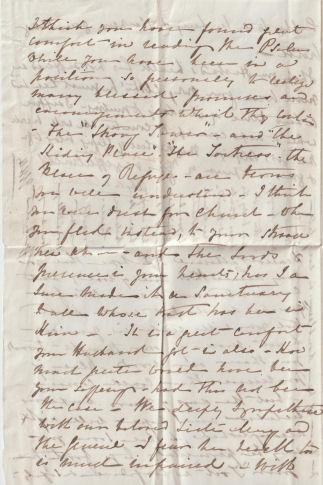 I think you have found great
comfort in reading the Psalms
while you have been in a
position so personally to realize
many blessed promises and
encouragements which they contain
- The "Strong Tower - and "the
Hiding Place" "The Fortress" "the
Place of Refuge - are terms
you well understand - I think
you
you fled instead, to your strong
and the Lord's
presence in your hearts, has I am
sure made it a Sanctuary
whose trust has been in
Him - It is a great comfort
your Husband got is also - How
much greater would have been
your sufferings had this not been
the case - We deeply sympathise
with our beloved Sister Mary and
the General - I fear her health too
is much impaired - With